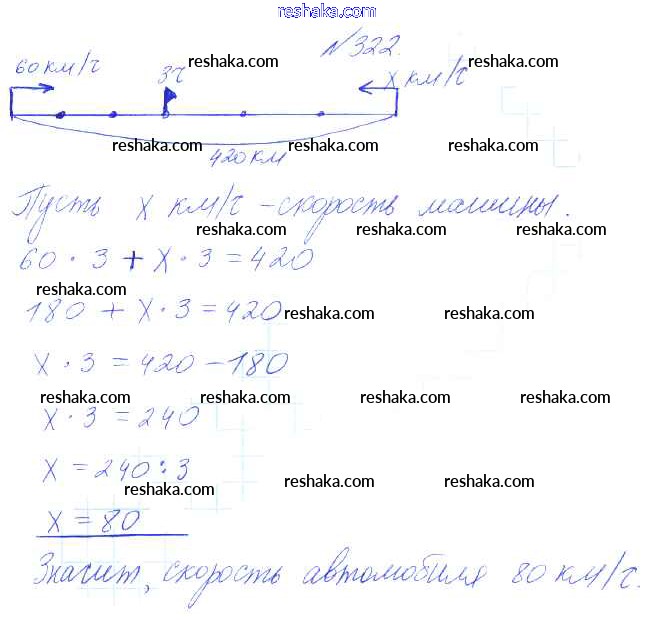 reshaka.com
№322.
60 км/ч 3ч reshaka.com reshaka.com х км/ч
reshaka.com reshaka.com reshaka.com
420 км
Пусть х км/ч - скорость машины.
reshaka.com reshaka.com
60 · 3 + х · 3 = 420 reshaka.com reshaka.com
reshaka.com
180 + х · 3 = 420 reshaka.com reshaka.com
х · 3 = 420 - 180
reshaka.com reshaka.com reshaka.com reshaka.com
х · 3 = 240
х = 240 : 3
reshaka.com reshaka.com reshaka.com
х = 80
Значит, скорость автомобиля 80 км/ч.